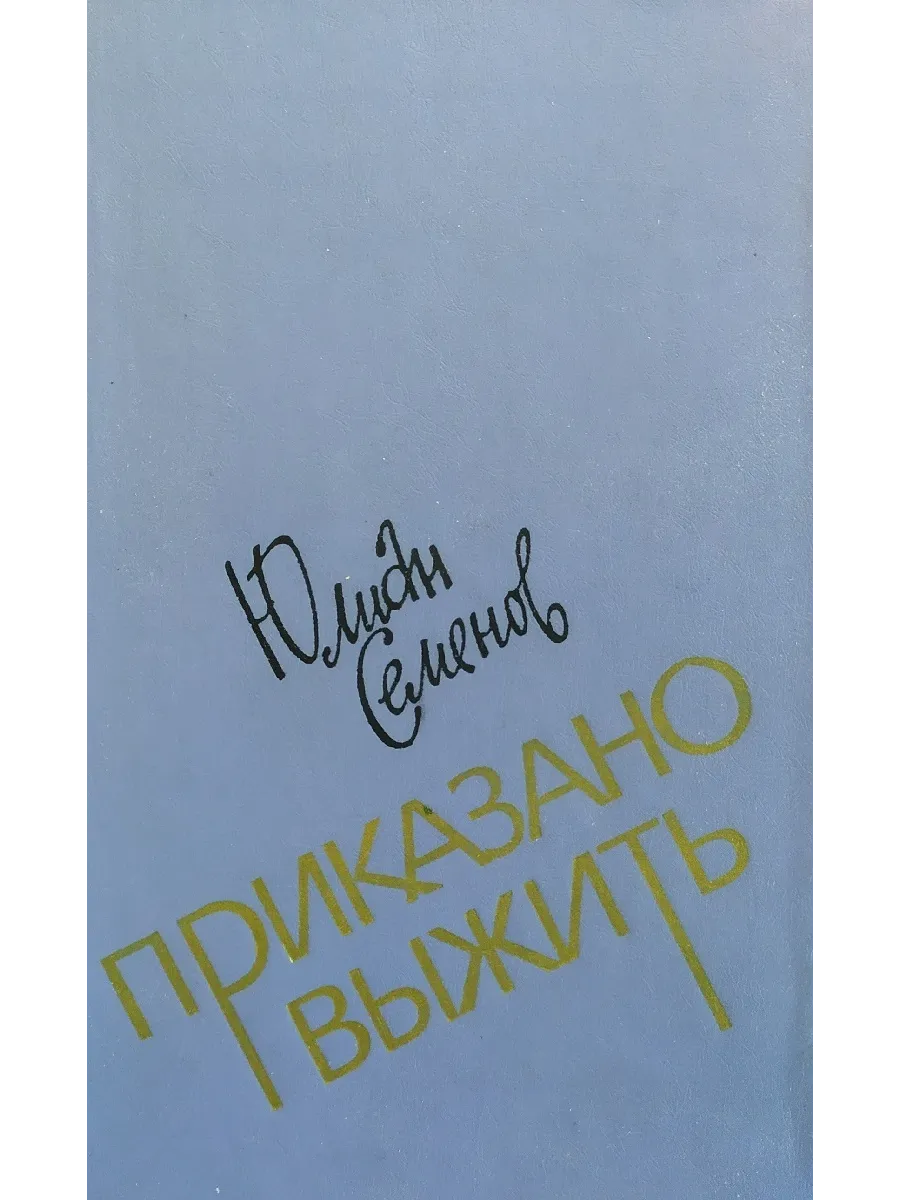 Юлиан
Семенов
ПРИКАЗАНО
ВЫЖИТЬ